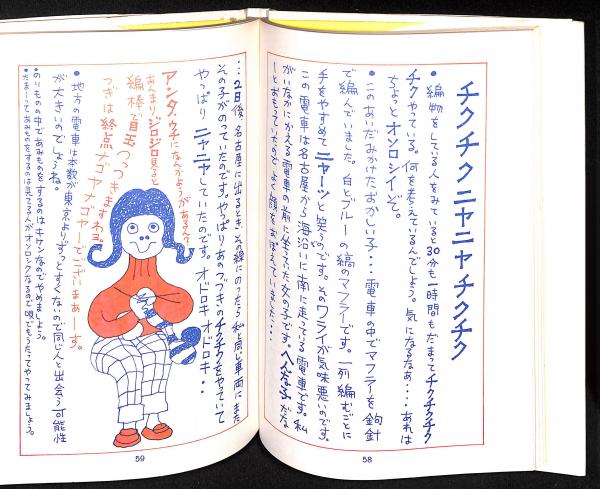 チクチクニヤニヤチクチク
・編物をしている人をみていると30分も一時間もだまってチクチクチク
チクやっている。何を考えているんでしょう。気になるなぁ…あれは
ちょっとオソロシイぞ。
・このあいだみかけたおかしい子…電車の中でマフラーを鉤針
で編んでいました。白とブルーの縞のマフラーです。一列編むごとに
手をやすめてニヤーッと笑うのです。そのワライが気味悪いのです。
この電車は名古屋から海沿いに南に走っている電車です。私
がいなかにかえる電車の前に坐っていた女の子です。へんな子だな
ーとおもっていたのでよく顔をおぼえていました…
58
…2日後、名古屋に出るとき、その線にのったら私と同じ車両にまた
その子がのっていたのです。やっぱりあのつづきのチクチクをやっていて
やっぱりニヤニヤしていたのです。オドロキオドロキ・・
アンタ、ウチになんかようがあるんか?
あんまりジロジロ見ると
編棒で目玉つっつきますわヨ。
つぎは終点ナゴヤナゴヤーでございまぁーす。
・地方の電車は本数が東京よりずっとすくないので同じ人と出会う可能性
が大きいのでしょうね。
・のりものの中であみものをするのはキケンなのでやめましょう。
・だまーってあみものをするのは見てる人がオソロシクなるので唄でもうたってやってみましょう。
59